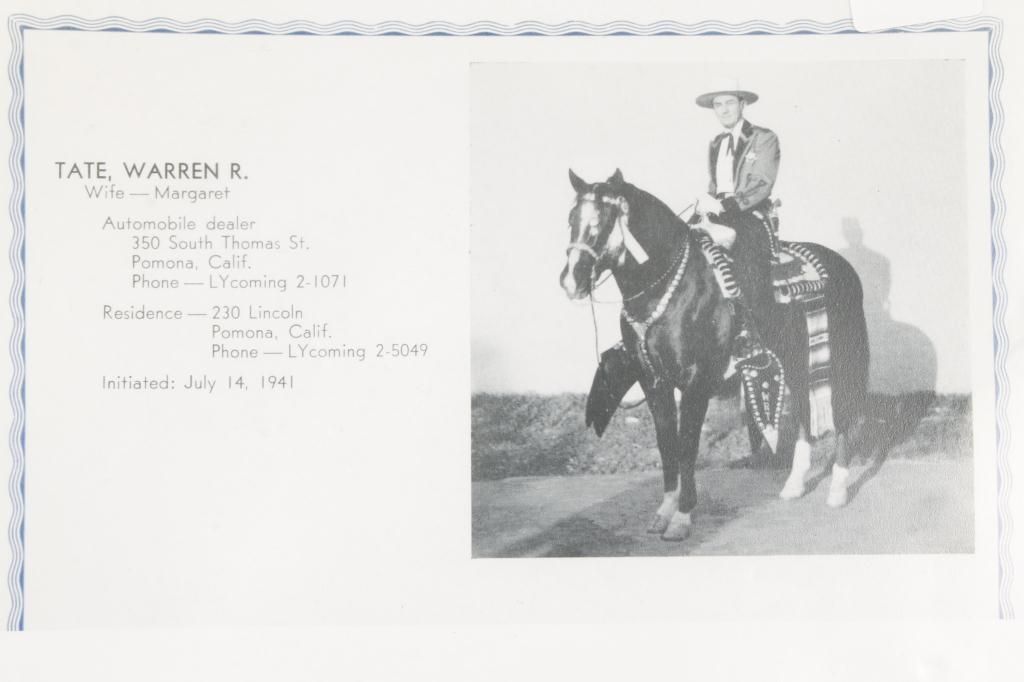 TATE, WARREN R.
Wife — Margaret
Automobile dealer
350 South Thomas St.
Pomona, Calif.
Phone — LYcoming 2-1071
Residence — 230 Lincoln
Pomona, Calif.
Phone — LYcoming 2-5049
Initiated: July 14, 1941
WRT